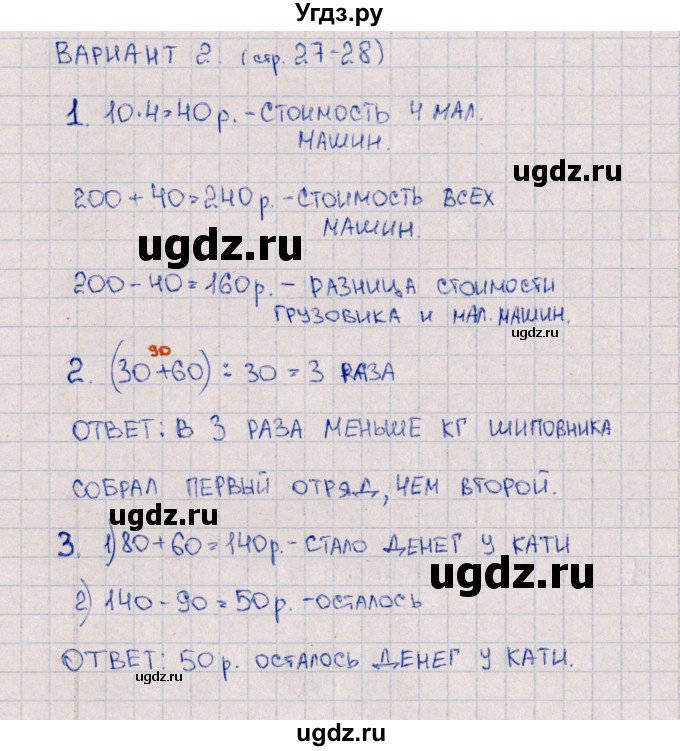 Угдз.ру
ВАРИАНТ 2. (стр. 27-28)
1. 10·4=40 р. - СТОИМОСТЬ 4 МАЛ.
МАШИН.
ugdz.ru
200 + 40 = 240 р. - СТОИМОСТЬ ВСЕХ
МАШИН.
ugdz.ru
200 - 40 = 160 р. - РАЗНИЦА СТОИМОСТИ
ГРУЗОВИКА И МАЛ. МАШИН.
ugdz.ru
90
2. (30+60) : 30 = 3 РАЗА
ОТВЕТ: В 3 РАЗА МЕНЬШЕ КГ ШИПОВНИКА
СОБРАЛ ПЕРВЫЙ ОТРЯД, ЧЕМ ВТОРОЙ.
ugdz.ru
3. 1) 80 + 60 = 140 р. - СТАЛО ДЕНЕГ У КАТИ
ugdz.ru
2) 140 - 90 = 50 р. - ОСТАЛОСЬ
ОТВЕТ: 50 р. ОСТАЛОСЬ ДЕНЕГ У КАТИ.
ugdz.ru
ugdz.ru
ugdz.ru